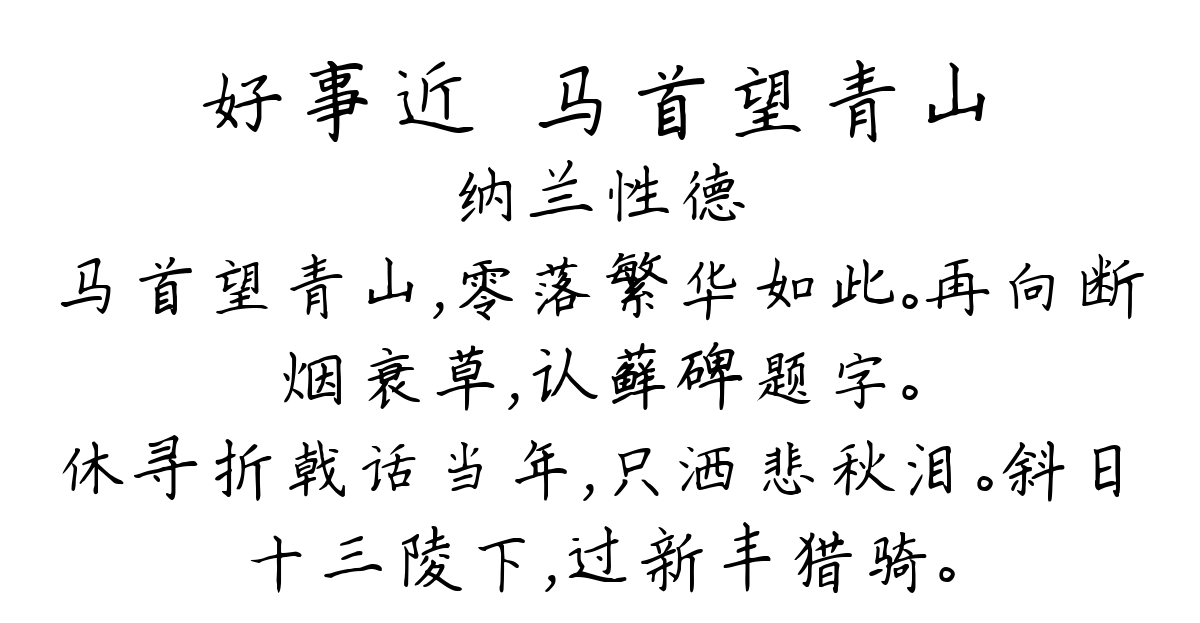 好事近 马首望青山
纳兰性德
马首望青山,零落繁华如此。再向断
烟衰草,认藓碑题字。
休寻折戟话当年,只洒悲秋泪。斜日
十三陵下,过新丰猎骑。